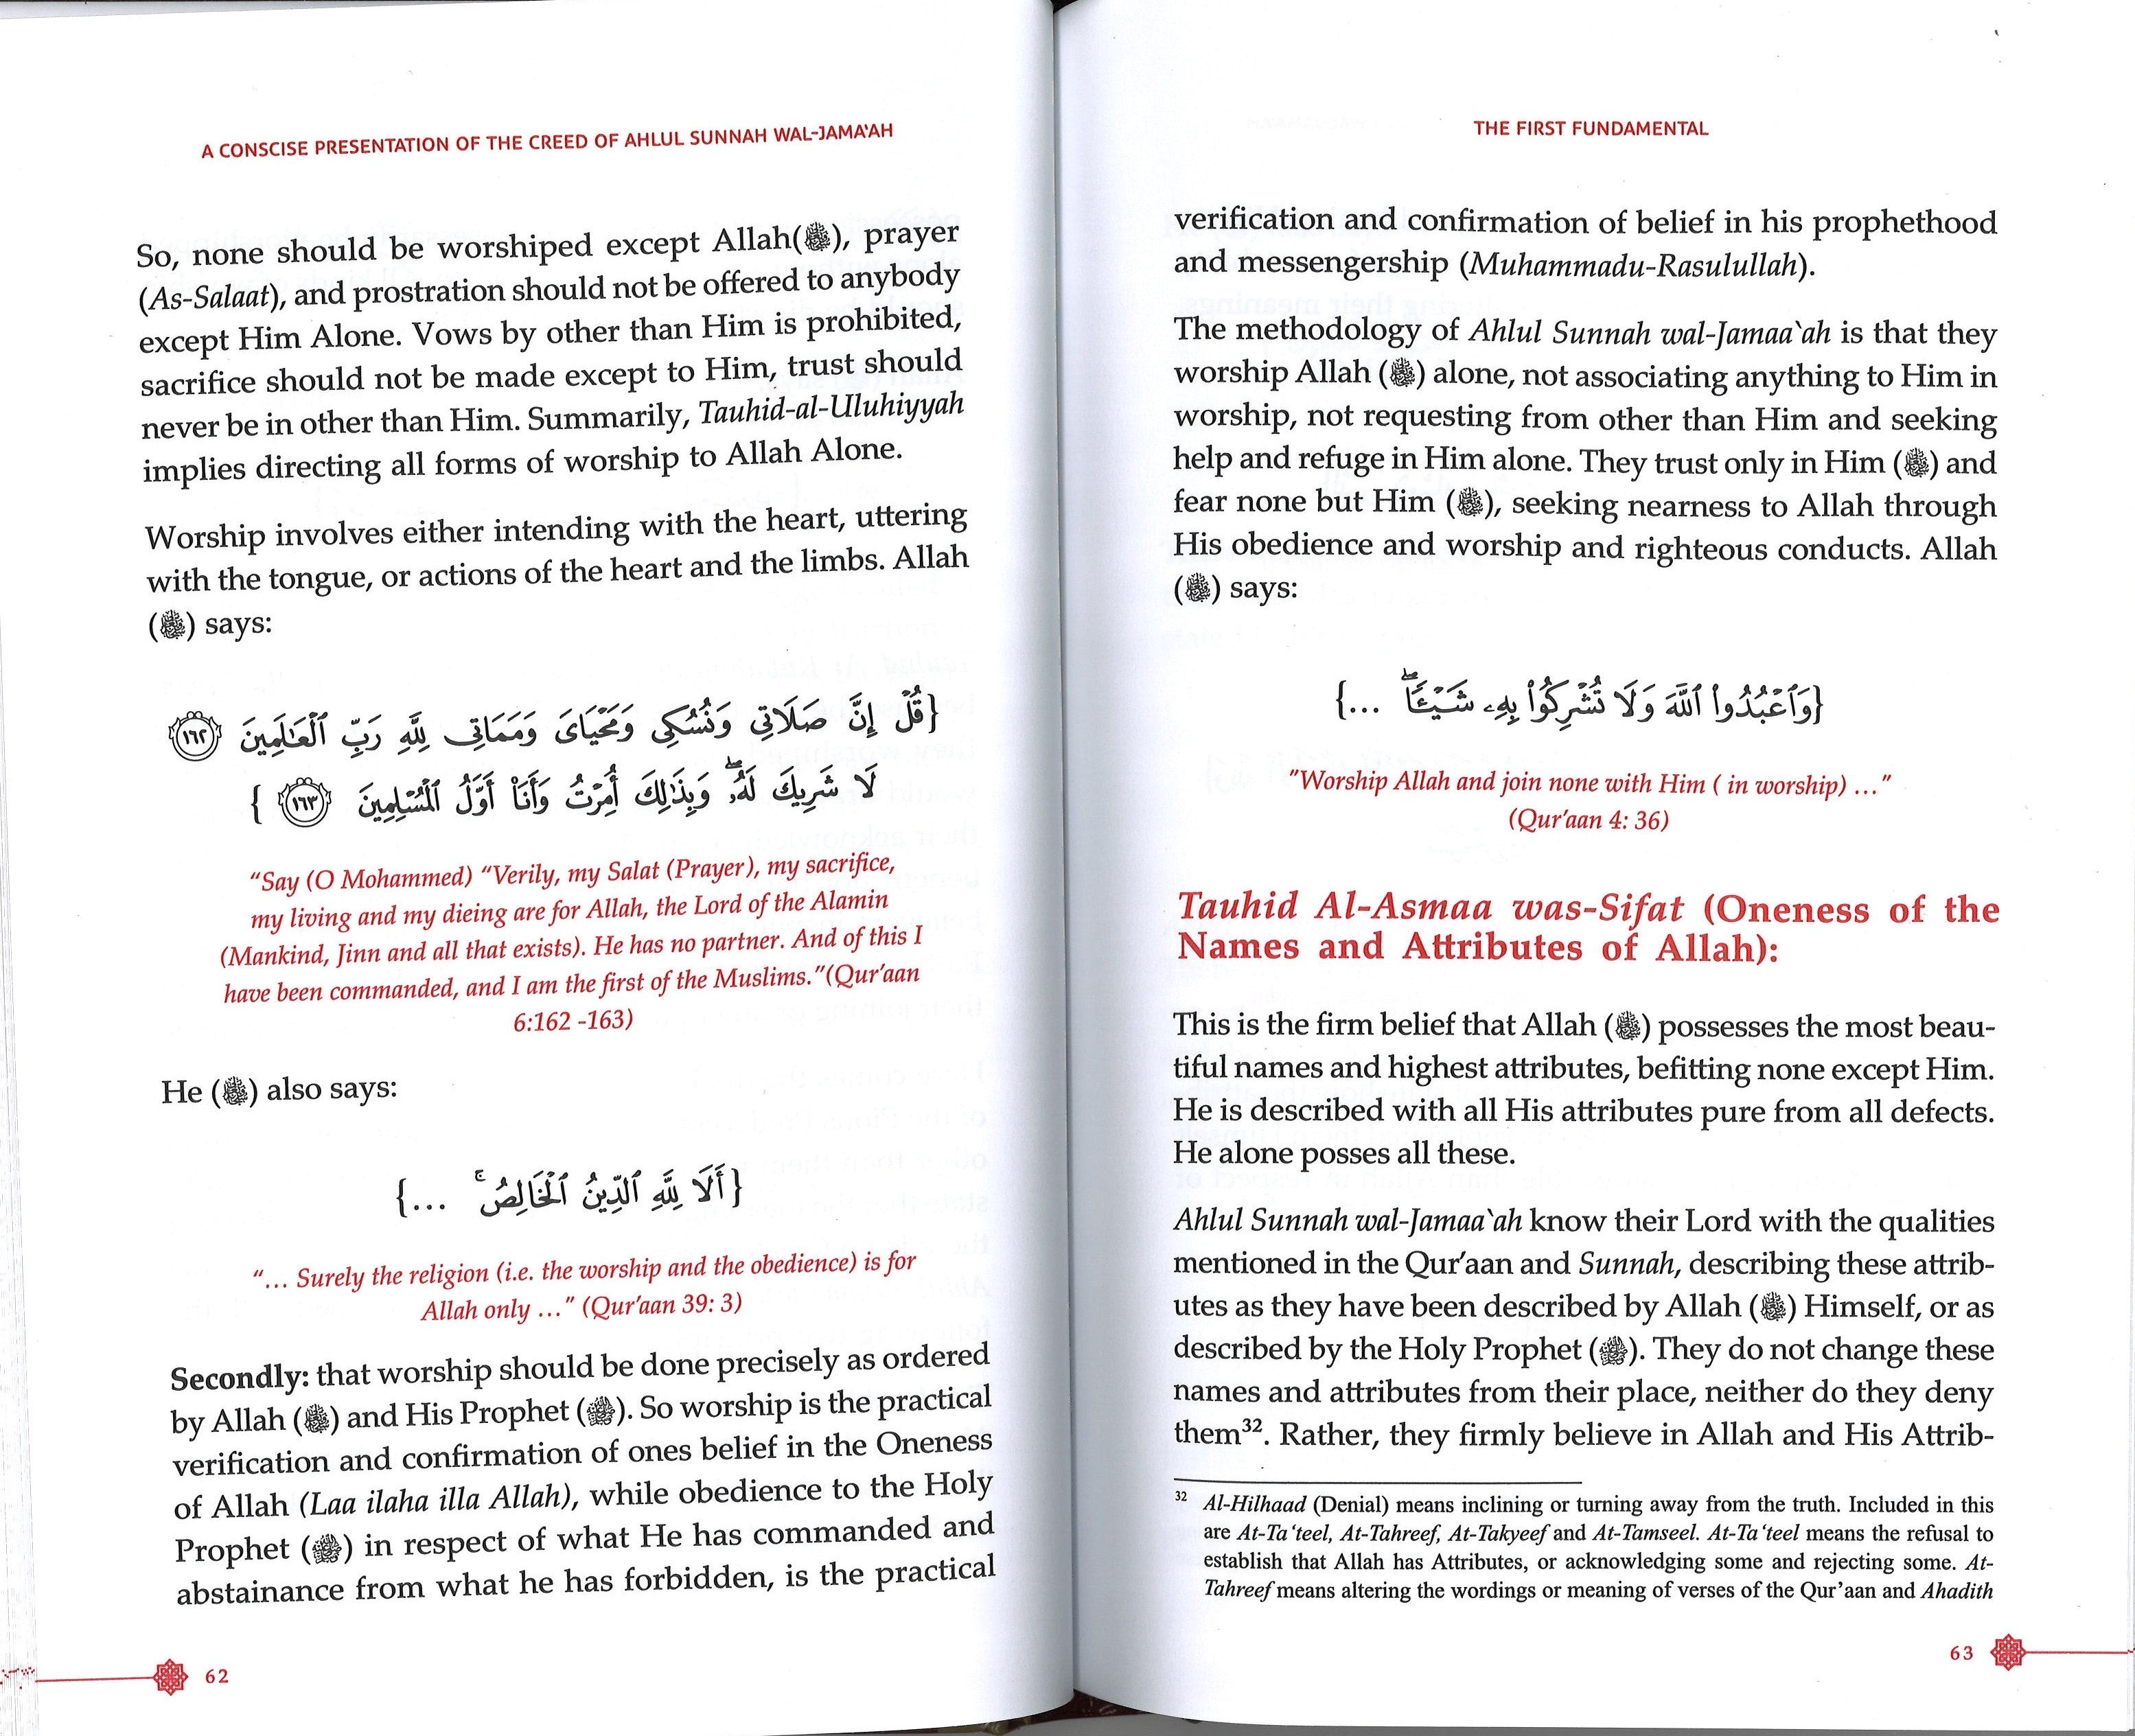 A CONSCISE PRESENTATION OF THE CREED OF AHLUL SUNNAH WAL-JAMA'AH
So, none should be worshiped except Allah(ﷻ), prayer
(As-Salaat), and prostration should not be offered to anybody
except Him Alone. Vows by other than Him is prohibited,
sacrifice should not be made except to Him, trust should
never be in other than Him. Summarily, Tauhid-al-Uluhiyyah
implies directing all forms of worship to Allah Alone.
Worship involves either intending with the heart, uttering
with the tongue, or actions of the heart and the limbs. Allah
(ﷻ) says:
{قُلْ إِنَّ صَلَاتِى وَنُسُكِى وَمَحْيَاىَ وَمَمَاتِى لِلَّهِ رَبِّ ٱلْعَـٰلَمِينَ ١٦٢
لَا شَرِيكَ لَهُۥ ۖ وَبِذَٰلِكَ أُمِرْتُ وَأَنَا۠ أَوَّلُ ٱلْمُسْلِمِينَ ١٦٣ }
“Say (O Mohammed) “Verily, my Salat (Prayer), my sacrifice,
my living and my dieing are for Allah, the Lord of the Alamin
(Mankind, Jinn and all that exists). He has no partner. And of this I
have been commanded, and I am the first of the Muslims.”(Qur’aan
6:162 -163)
He (ﷻ) also says:
{أَلَا لِلَّهِ ٱلدِّينُ ٱلْخَالِصُ ۚ ...}
“… Surely the religion (i.e. the worship and the obedience) is for
Allah only …” (Qur’aan 39: 3)
Secondly: that worship should be done precisely as ordered
by Allah (ﷻ) and His Prophet (ﷺ). So worship is the practical
verification and confirmation of ones belief in the Oneness
of Allah (Laa ilaha illa Allah), while obedience to the Holy
Prophet (ﷺ) in respect of what He has commanded and
abstainance from what he has forbidden, is the practical
62
THE FIRST FUNDAMENTAL
verification and confirmation of belief in his prophethood
and messengership (Muhammadu-Rasulullah).
The methodology of Ahlul Sunnah wal-Jamaa`ah is that they
worship Allah (ﷻ) alone, not associating anything to Him in
worship, not requesting from other than Him and seeking
help and refuge in Him alone. They trust only in Him (ﷻ) and
fear none but Him (ﷻ), seeking nearness to Allah through
His obedience and worship and righteous conducts. Allah
(ﷻ) says:
{وَٱعْبُدُوا۟ ٱللَّهَ وَلَا تُشْرِكُوا۟ بِهِۦ شَيْـًٔا ۖ ...}
"Worship Allah and join none with Him ( in worship) …”
(Qur’aan 4: 36)
Tauhid Al-Asmaa was-Sifat (Oneness of the
Names and Attributes of Allah):
This is the firm belief that Allah (ﷻ) possesses the most beau-
tiful names and highest attributes, befitting none except Him.
He is described with all His attributes pure from all defects.
He alone posses all these.
Ahlul Sunnah wal-Jamaa`ah know their Lord with the qualities
mentioned in the Qur’aan and Sunnah, describing these attrib-
utes as they have been described by Allah (ﷻ) Himself, or as
described by the Holy Prophet (ﷺ). They do not change these
names and attributes from their place, neither do they deny
them32. Rather, they firmly believe in Allah and His Attrib-
32 Al-Hilhaad (Denial) means inclining or turning away from the truth. Included in this
are At-Ta‘teel, At-Tahreef, At-Takyeef and At-Tamseel. At-Ta‘teel means the refusal to
establish that Allah has Attributes, or acknowledging some and rejecting some. At-
Tahreef means altering the wordings or meaning of verses of the Qur’aan and Ahadith
63